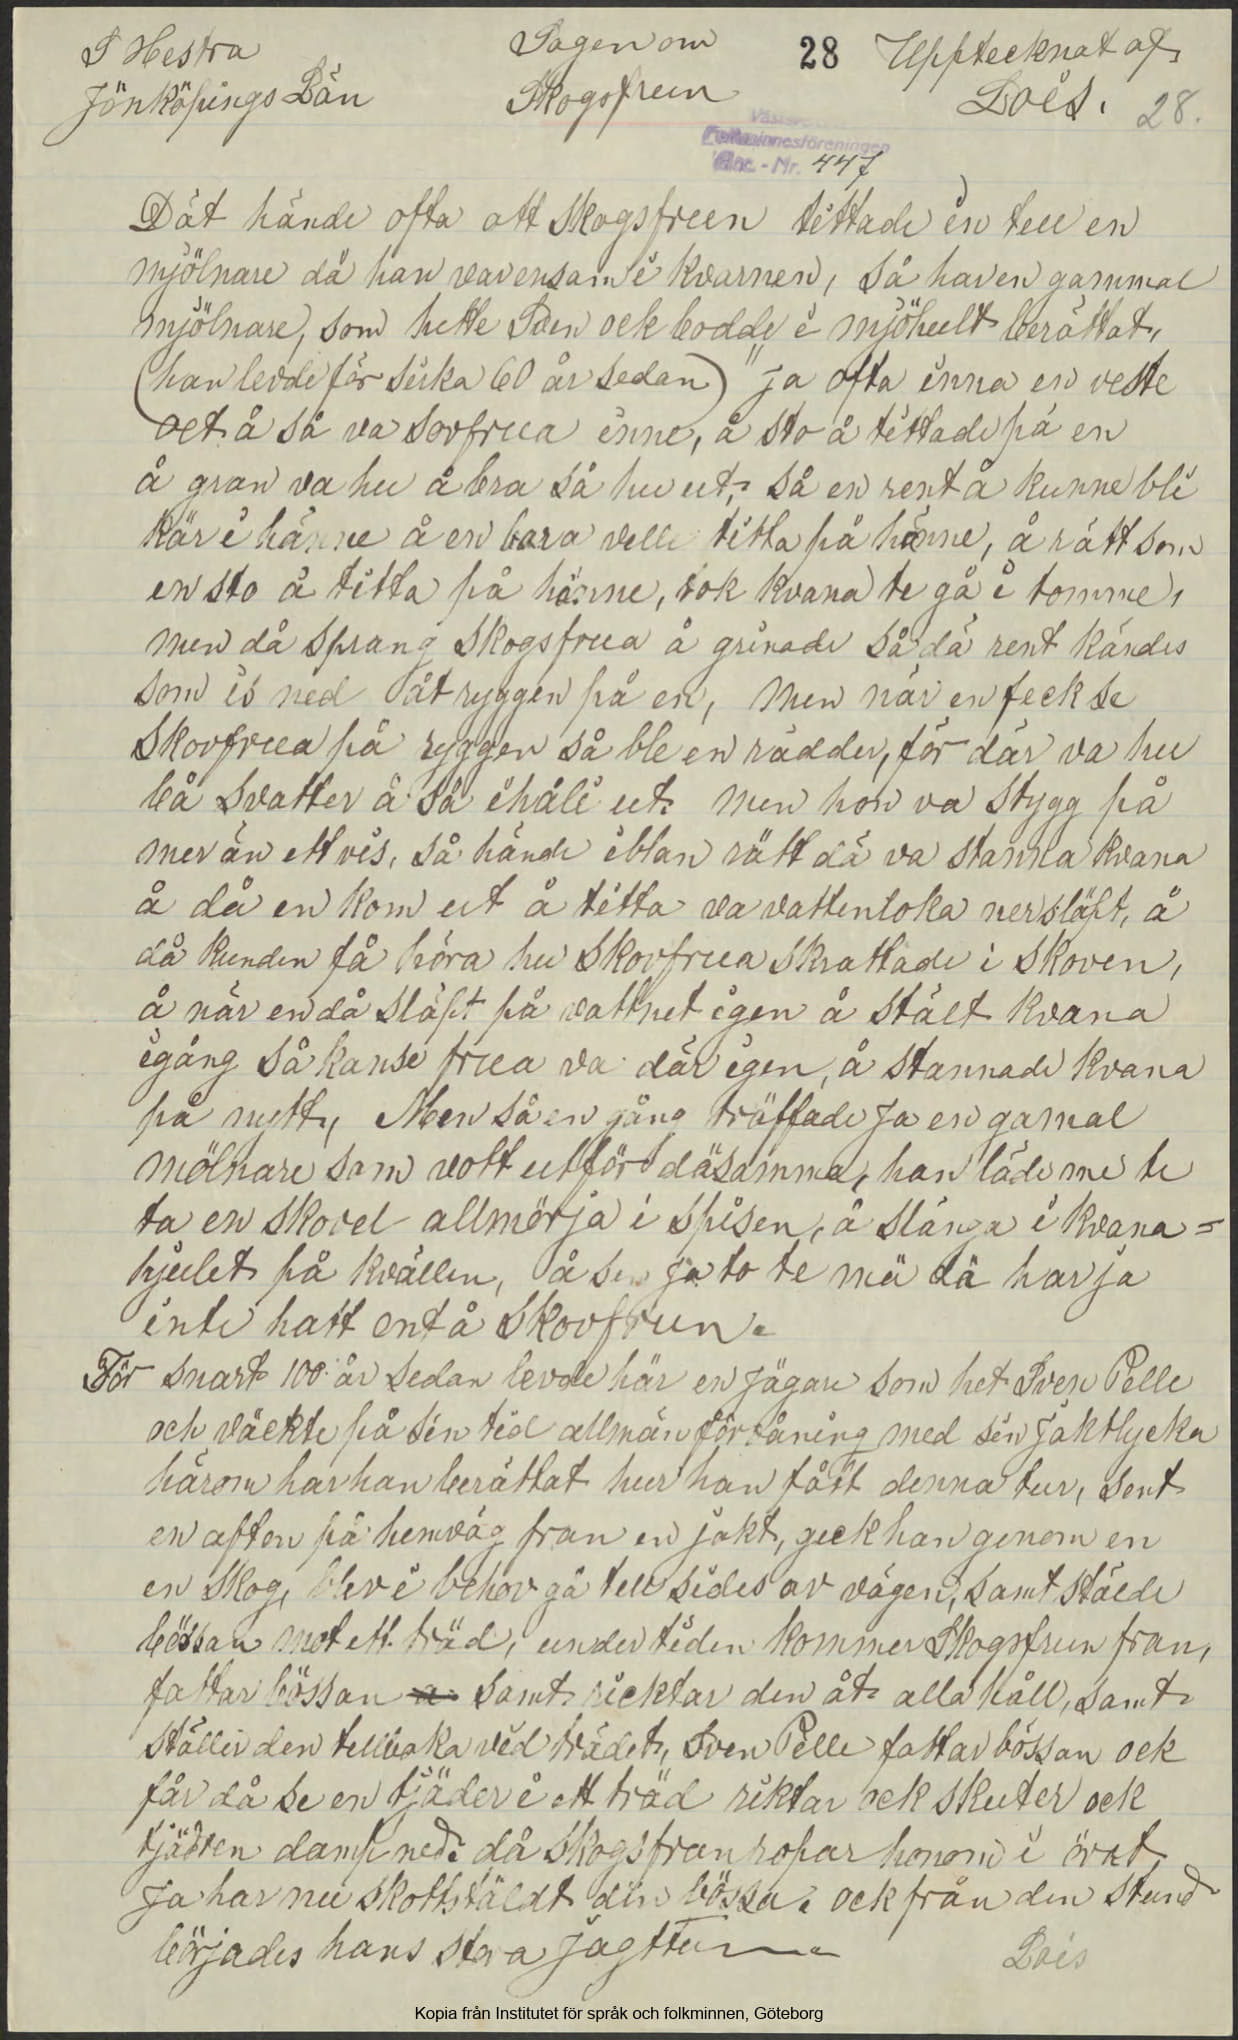 S Hestra
Jönköpings Län
Sagen om
Skogsfrun
28
Upptecknat af
Loís.
28.
Folkminnesföreningen
Acc. - Nr. 447
Dät hände ofta att Skogsfruen tittade in till en
mjölnare då han var ensam i kvarnen, så har en gammal
mjölnare, som hette Sven ock bodde i mjöhult berättat,
(han levde för sirka 60 år sedan) "ja ofta inna en veste
oet å så va sovfrua inne, å sto å tittade på en
å gran va hu å bra så hu ut, så en rent å kunne bli
kär i hänne å en bara velle titta på hänne, å rätt som
en sto å titta på hänne, tok kvana te gå i tomme,
men då sprang Skogsfrua å grinade så dä rent kändes
som is ned åt ryggen på en, men när en feck se
Skovfrua på ryggen så ble en rädder, för där va hu
bå svatter å så ihåli ut. men hon va stygg på
mer än ett vis, så hände iblan rätt dä va stanna kvana
å då en kom ut å titta va vattenloka nersläft, å
då kunden få höra hu Skovfrua skrattade i skoven,
å när en då släft på vattnet igen å stält kvana
igång så kanse frua va där igen, å stannade kvana
på nytt, Men så en gång träffade ja en gamal
mölnare som vott utför däsamma, han läde me te
ta en skovel allmörja i spisen, å slänga i kvana=
hjulet på kvällen, å sen ja to te mä dä har ja
inte hatt ent å Skovfrun.
För snart 100 år sedan levde här en jägare som het Sven Pelle
och väckte på sin tid allmän förvåning med sin jaktlycka
härom har han berättat hur han fått denna tur, sent
en afton på hemväg fran en jakt, geck han genom en
en skog, blev i behov gå till sides av vägen, samt stälde
bössan mot ett träd, under tiden kommer Skogsfrun fran,
fattar bössan samt ricktar den åt alla håll, samt
ställer den tillbaka ved trädet, Sven Pelle fattar bössan ock
får då se en tjäder i ett träd riktar ock skuter ock
tjädren damp ned. då Skogsfran ropar honom i örat,
Ja har nu skottstäldt din bössa. ock från den stund
börjades hans stora jagttur
Loís
Kopia från Institutet för språk och folkminnen, Göteborg